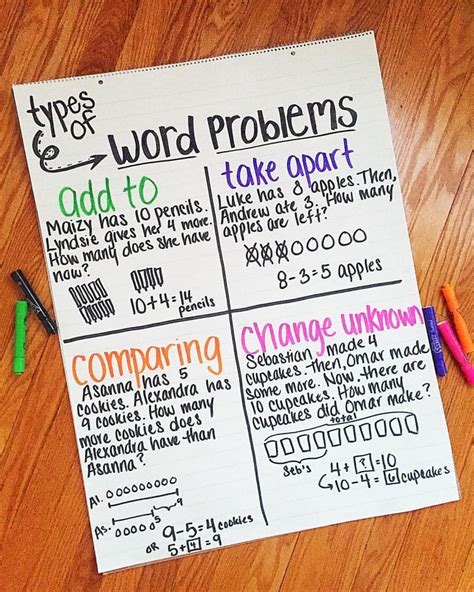 types
of
word problems
add to
Maizy has 10 pencils.
Lyndsie gives her 4 more.
How many does she have
now?
10+4=14
pencils
take apart
Luke has 8 apples. Then,
Andrew ate 3. How many
apples are left?
8-3=5 apples
comparing
Asanna has 5
cookies. Alexandra has
9 cookies. How many
more cookies does
Alexandra have than
Asanna?
Al.
As.
9-5=4 cookies
OR 5+4=9
change unknown
Sebastian made 4
cupcakes. Then, Omar made
some more. Now there are
10 cupcakes. How many
cupcakes did Omar make?
total
Seb's
4+?=10
10-4=6 cupcakes